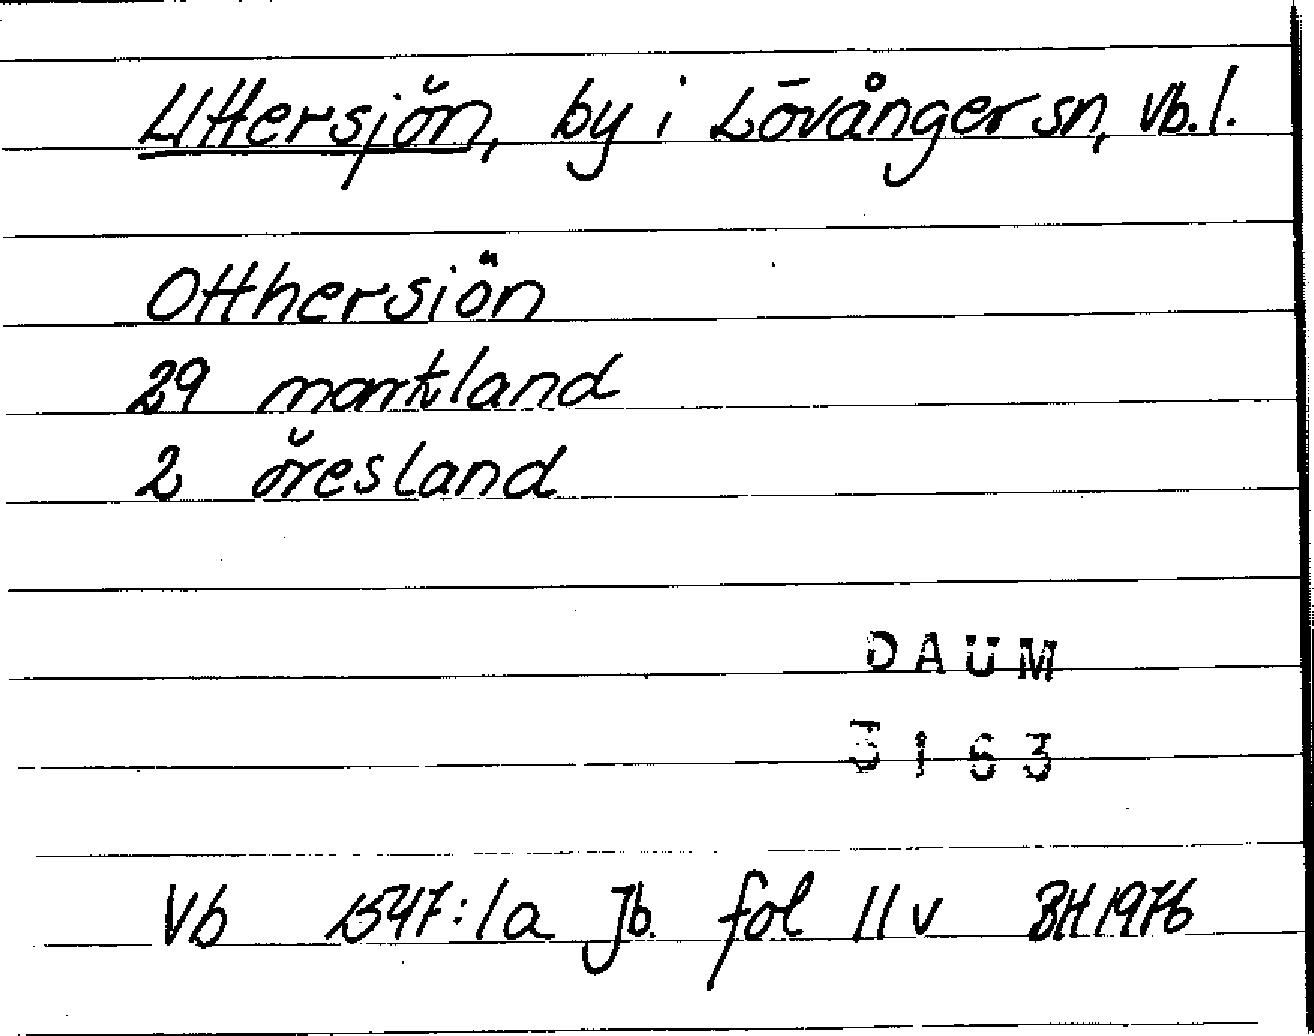 Uttersjön, by i Lövånger sn, Vb. l.
Otthersiön
29 markland
2 öresland
DAUM
3163
Vb 1547:1a Jb. fol 11 v BH 1976